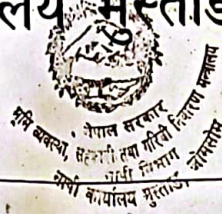 लय मुस्ताङ
नेपाल सरकार
भूमि व्यवस्था, सहकारी तथा गरिबी निवारण मन्त्रालय
नापी विभाग
नापी कार्यालय मुस्ताङ जोमसोम